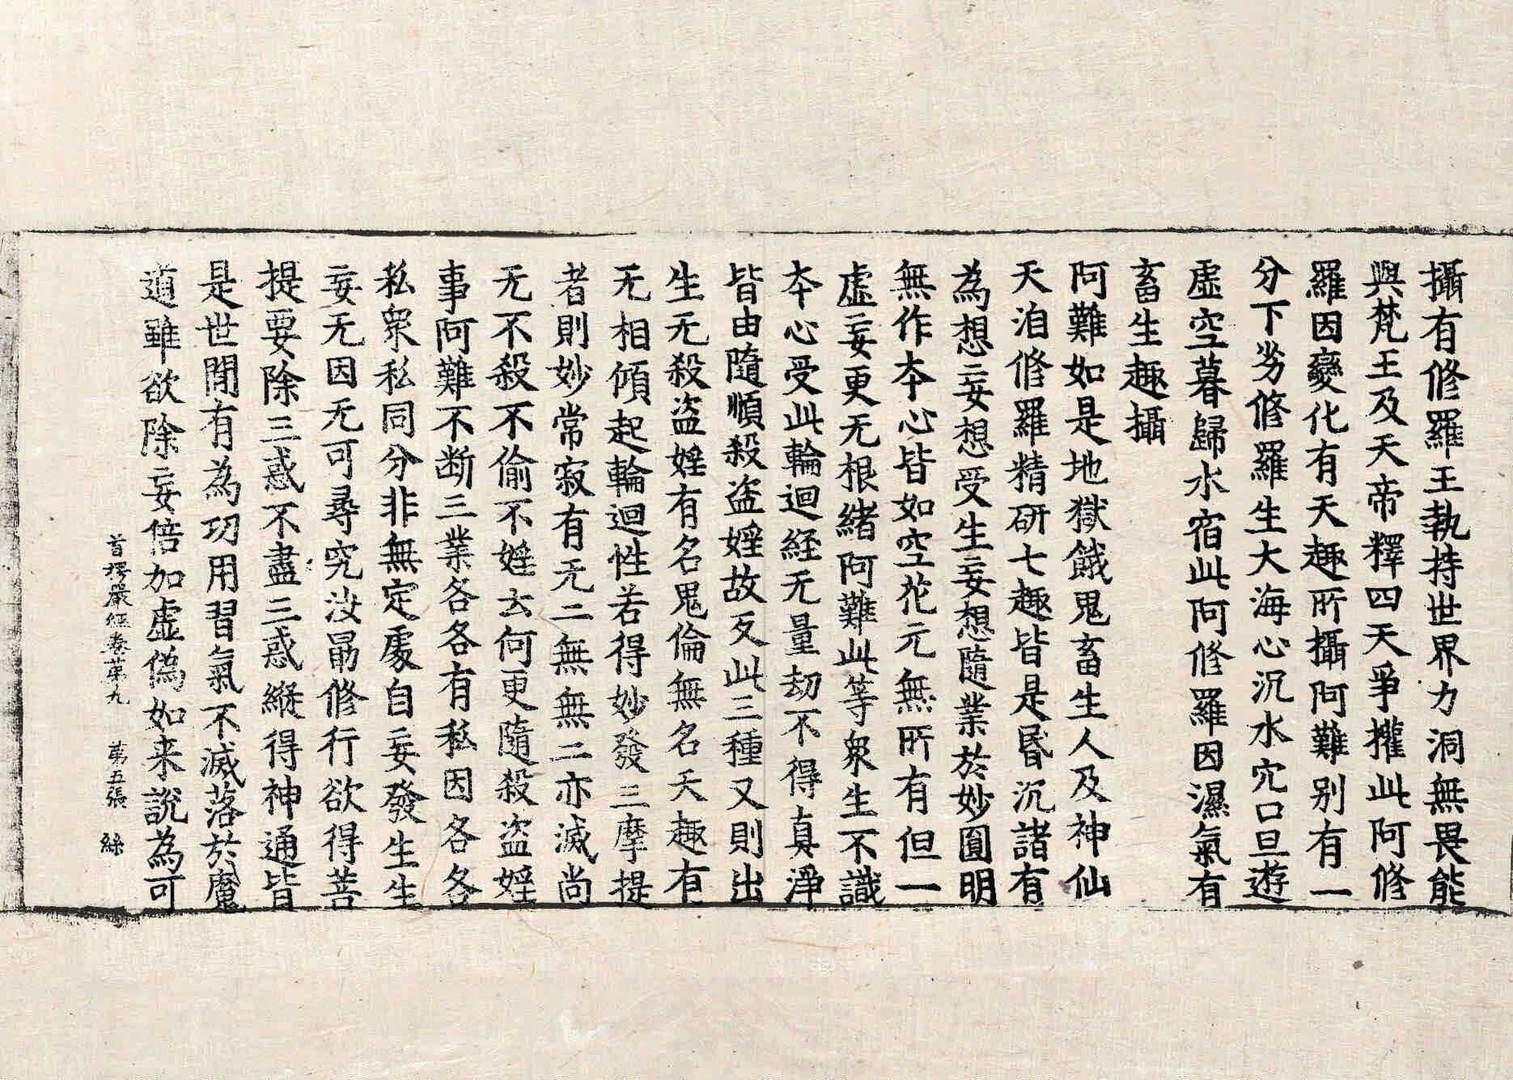 攝有修羅王執持世界力洞無畏能
與梵王及天帝釋四天爭攉此阿修
羅因變化有天趣所攝阿難別有一
分下劣修羅生大海心沉水穴口旦遊
虛空暮歸水宿此阿修羅因濕氣有
畜生趣攝
阿難如是地獄餓鬼畜生人及神仙
天洎修羅精研七趣皆是昏沉諸有
為想妄想受生妄想隨業於妙圓明
無作本心皆如空花元無所有但一
虛妄更无根緒阿難此等衆生不識
本心受此輪迴經无量劫不得真淨
皆由隨順殺盜婬故反此三種又則出
生无殺盜婬有名鬼倫無名天趣有
无相傾起輪迴性若得妙發三摩提
者則妙常寂有无二無無二亦滅尚
无不殺不偷不婬云何更隨殺盜婬
事阿難不断三業各各有私因各各
私衆私同分非無定處自妄發生生
妄无因无可尋究汝勗修行欲得菩
提要除三惑不盡三惑縱得神通皆
是世間有為功用習氣不滅落於魔
道雖欲除妄倍加虛僞如来說為可
首楞嚴經卷苐九 苐五張 絲